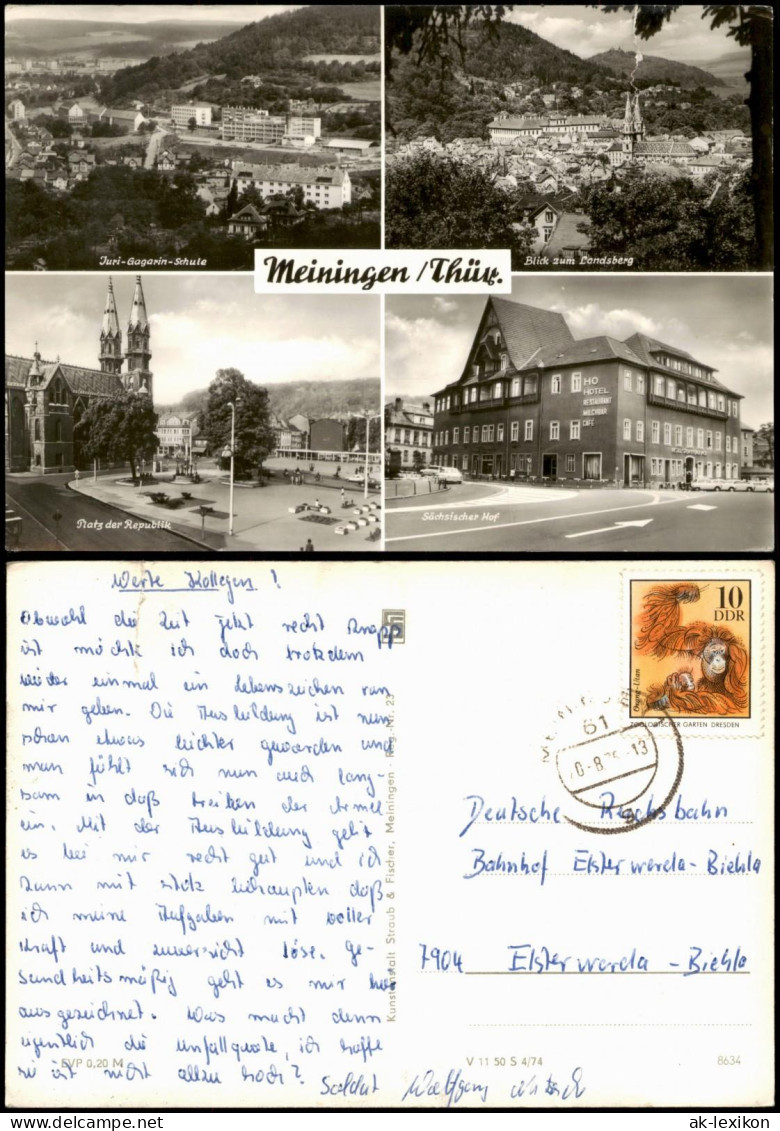 Juri-Gagarin-Schule
Blick zum Landsberg
Meiningen/Thür.
HO
HOTEL
RESTAURANT
MILCHBAR
CAFE
Platz der Republik
Sächsischer Hof
Werte Kollegen!
Obwohl die Zeit jetzt recht knapp
ist möchte ich doch trotzdem
wieder einmal ein Lebenszeichen von
mir geben. Die Ausbildung ist nun
schon etwas leichter geworden und
man fühlt sich nun auch lang-
sam in daß treiben der Armee
ein. Mit der Ausbildung geht
es bei mir recht gut und ich
kann mit stolz behaupten daß
ich meine Aufgaben mit voller
Kraft und zuversicht löse. Ge-
sundheitsmäßig geht es mir hier
ausgezeichnet. Was macht denn
eigentlich die unfallquote, ich hoffe
sie ist nicht allzu hoch?
Soldat Wolfgang
EVP 0,20 M
Kunstanstalt Straub & Fischer, Meiningen Reg.-Nr. 23
10
DDR
Orang-Utan
ZOOLOGISCHER GARTEN DRESDEN
61
Deutsche Reichsbahn
Bahnhof Elsterwerda-Biehla
7904 Elsterwerda-Biehla
V 11 50 S 4/74
8634
ak-lexikon